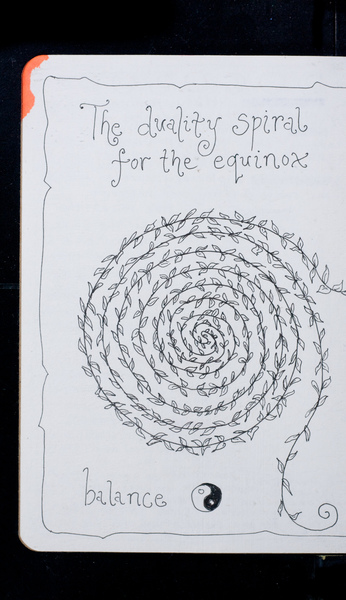 The duality spiral
for the equinox
balance